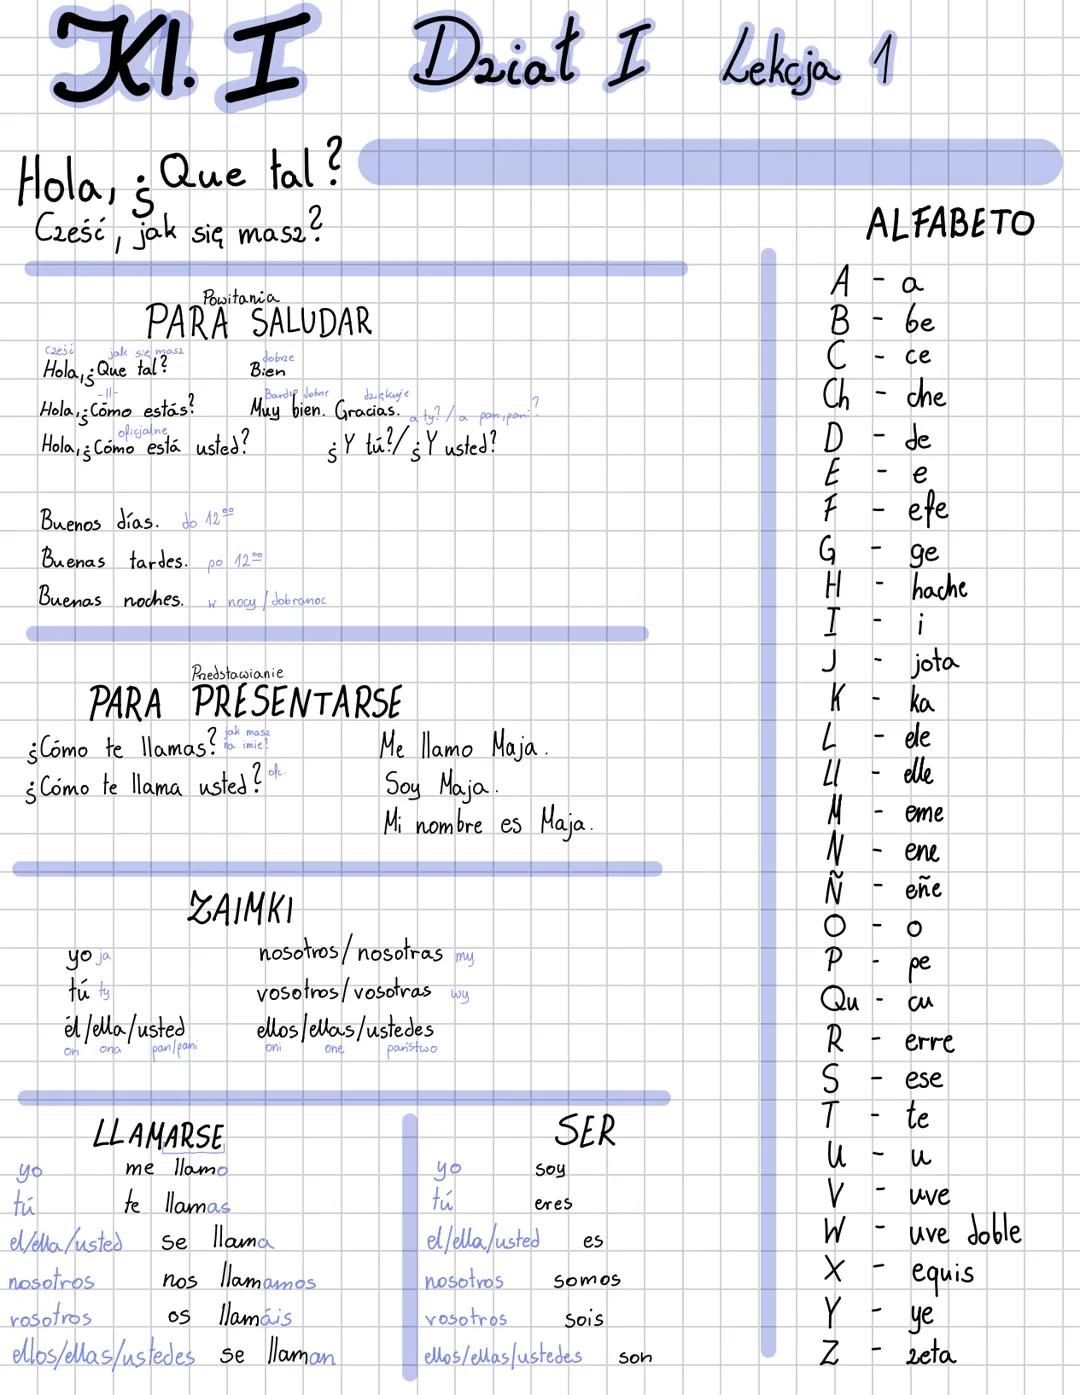 Kl. I Dział I Lekcja 1
Hola, ¿Que tal?
Cześć, jak się masz?
Powitania
PARA SALUDAR
cześć jak się masz dobrze
Hola, ¿Que tal? Bien
-||- Bardzo dobrze dziękuje
Hola, ¿Cómo estás? Muy bien. Gracias. a ty? / a pan, pani?
oficjalne
Hola, ¿Cómo está usted? ¿Y tú?/ ¿Y usted?
Buenos días. do 12⁰⁰
Buenas tardes. po 12⁰⁰
Buenas noches. w nocy / dobranoc
Przedstawianie
PARA PRESENTARSE
¿Cómo te llamas? jak masz na imie? Me llamo Maja.
¿Cómo te llama usted? ofc. Soy Maja.
Mi nombre es Maja.
ZAIMKI
yo ja nosotros/nosotras my
tú ty vosotros/vosotras wy
él/ella/usted ellos/ellas/ustedes
on ona pan/pani oni one państwo
LLAMARSE
yo me llamo
tú te llamas
el/ella/usted se llama
nosotros nos llamamos
vosotros os llamáis
ellos/ellas/ustedes se llaman
SER
yo soy
tú eres
el/ella/usted es
nosotros somos
vosotros sois
ellos/ellas/ustedes son
ALFABETO
A - a
B - be
C - ce
Ch - che
D - de
E - e
F - efe
G - ge
H - hache
I - i
J - jota
K - ka
L - ele
Ll - elle
M - eme
N - ene
Ñ - eñe
O - o
P - pe
Qu - cu
R - erre
S - ese
T - te
U - u
V - uve
W - uve doble
X - equis
Y - ye
Z - zeta